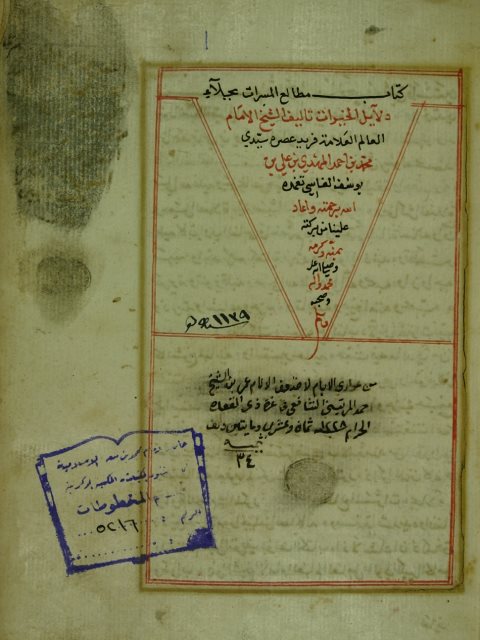 كتاب مطالع المسرات بجلآء
دلآيل الخيرات تاليف الشيخ الامام
العالم العلامة فريد عصره سيدي
محمد بن احمد المهدي بن علي بن
يوسف الفاسي تغمده
الله برحمته واعاد
علينا من بركته
بمنه وكرمه
وصلى الله على
محمد واله
وصحبه
وسلم
١١٣٩
من عواري الايام لاضعف الانام عمر بن الشيخ
احمد الشافعي في غرة ذي القعدة
الحرام ١٢٢٨ ثمان وعشرين ومايتين والف
٣٤
الاسلامية
المخطوطات
الرقم ٥٢١٦